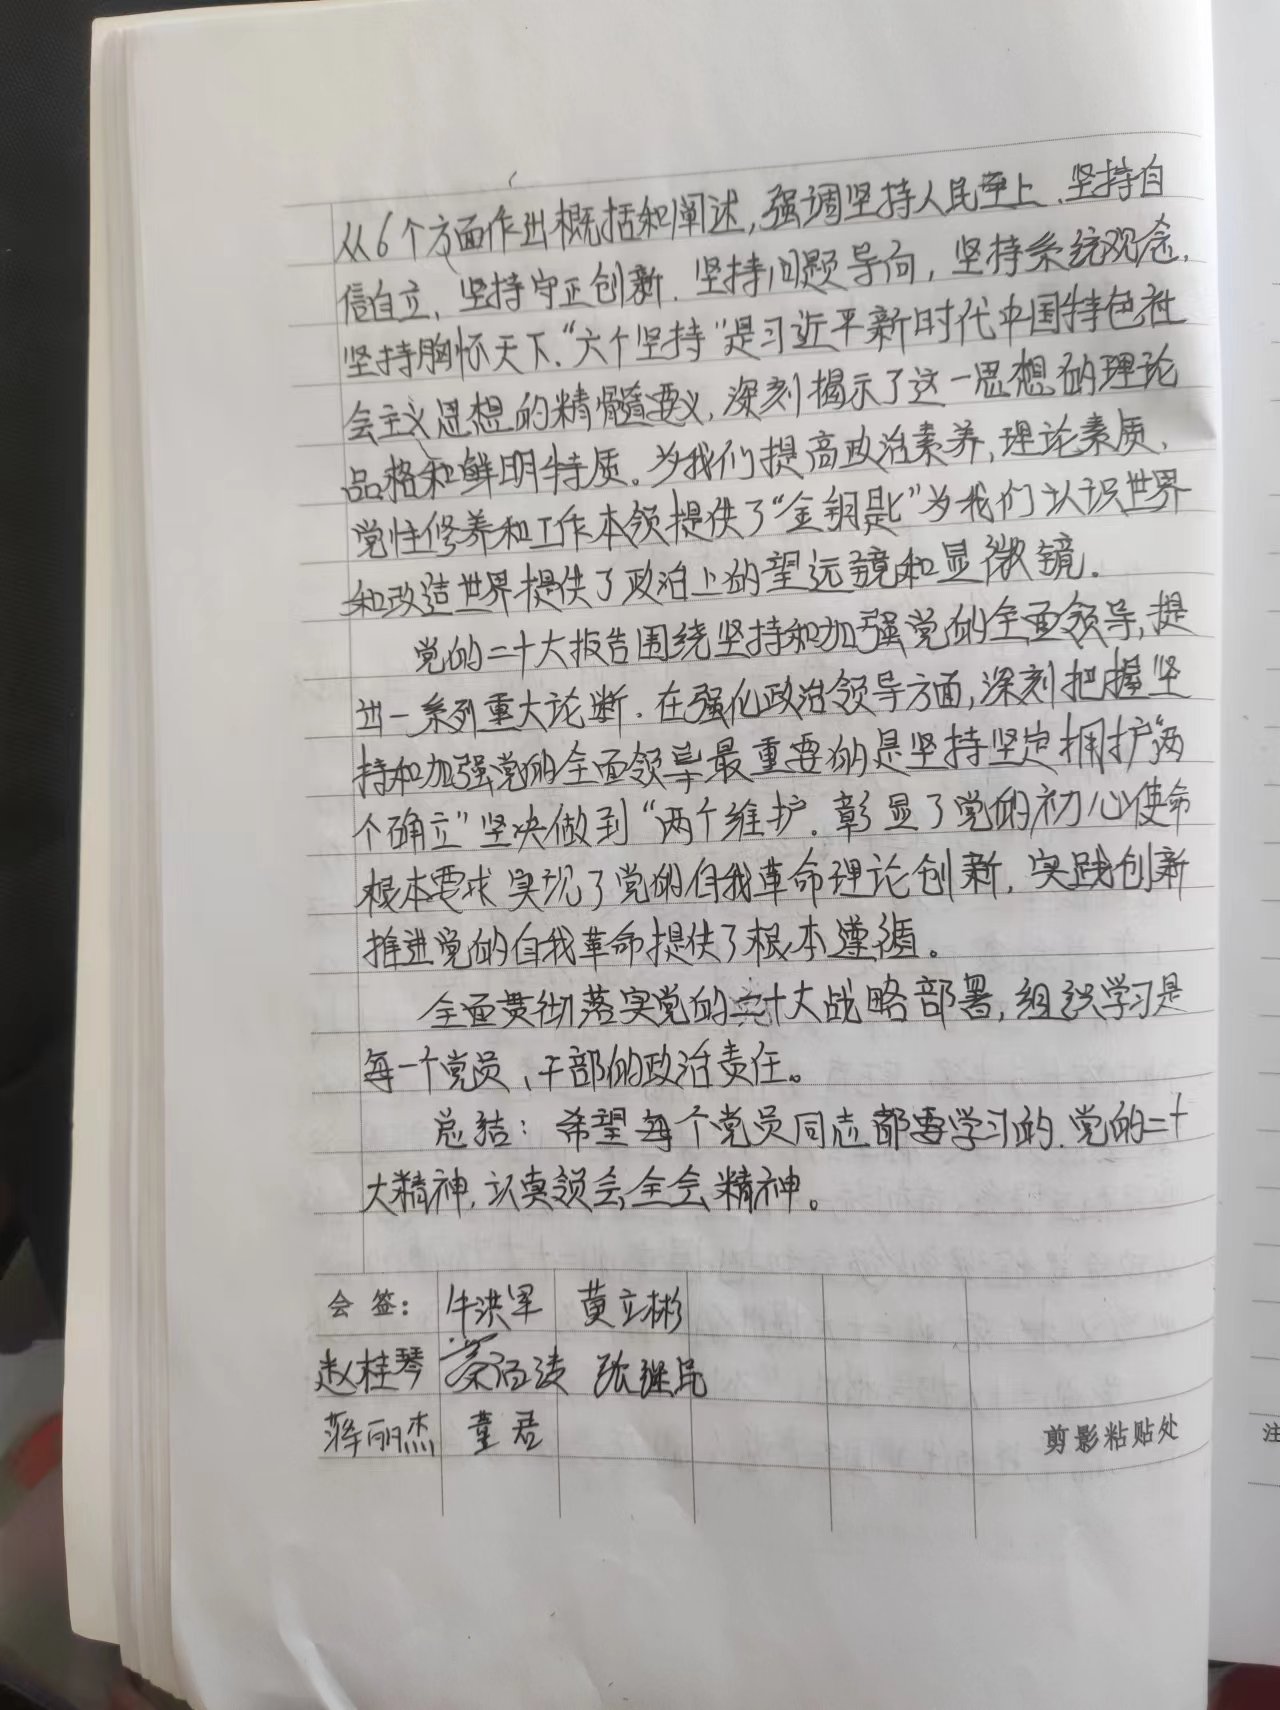 从6个方面作出概括和阐述,强调坚持人民至上、坚持自
信自立,坚持守正创新、坚持问题导向,坚持系统观念,
坚持胸怀天下、“六个坚持”是习近平新时代中国特色社
会主义思想的精髓要义,深刻揭示了这一思想的理论
品格和鲜明特质。为我们提高政治素养,理论素质,
党性修养和工作本领提供了“金钥匙”为我们认识世界
和改造世界提供了政治上的望远镜和显微镜.
党的二十大报告围绕坚持和加强党的全面领导,提
出一系列重大论断.在强化政治领导方面,深刻把握坚
持和加强党的全面领导最重要的是坚持坚定拥护“两
个确立”坚决做到“两个维护.彰显了党的初心使命
根本要求 实现了党的自我革命理论创新,实践创新
推进党的自我革命提供了根本遵循。
全面贯彻落实党的二十大战略部署,组织学习是
每一个党员、干部的政治责任。
总结:希望每个党员同志都要学习的.党的二十
大精神,认真领会全会精神。
会 签: 牛洪军 黄立彬
赵桂琴 张继民
蒋丽杰 董君
剪影粘贴处
注